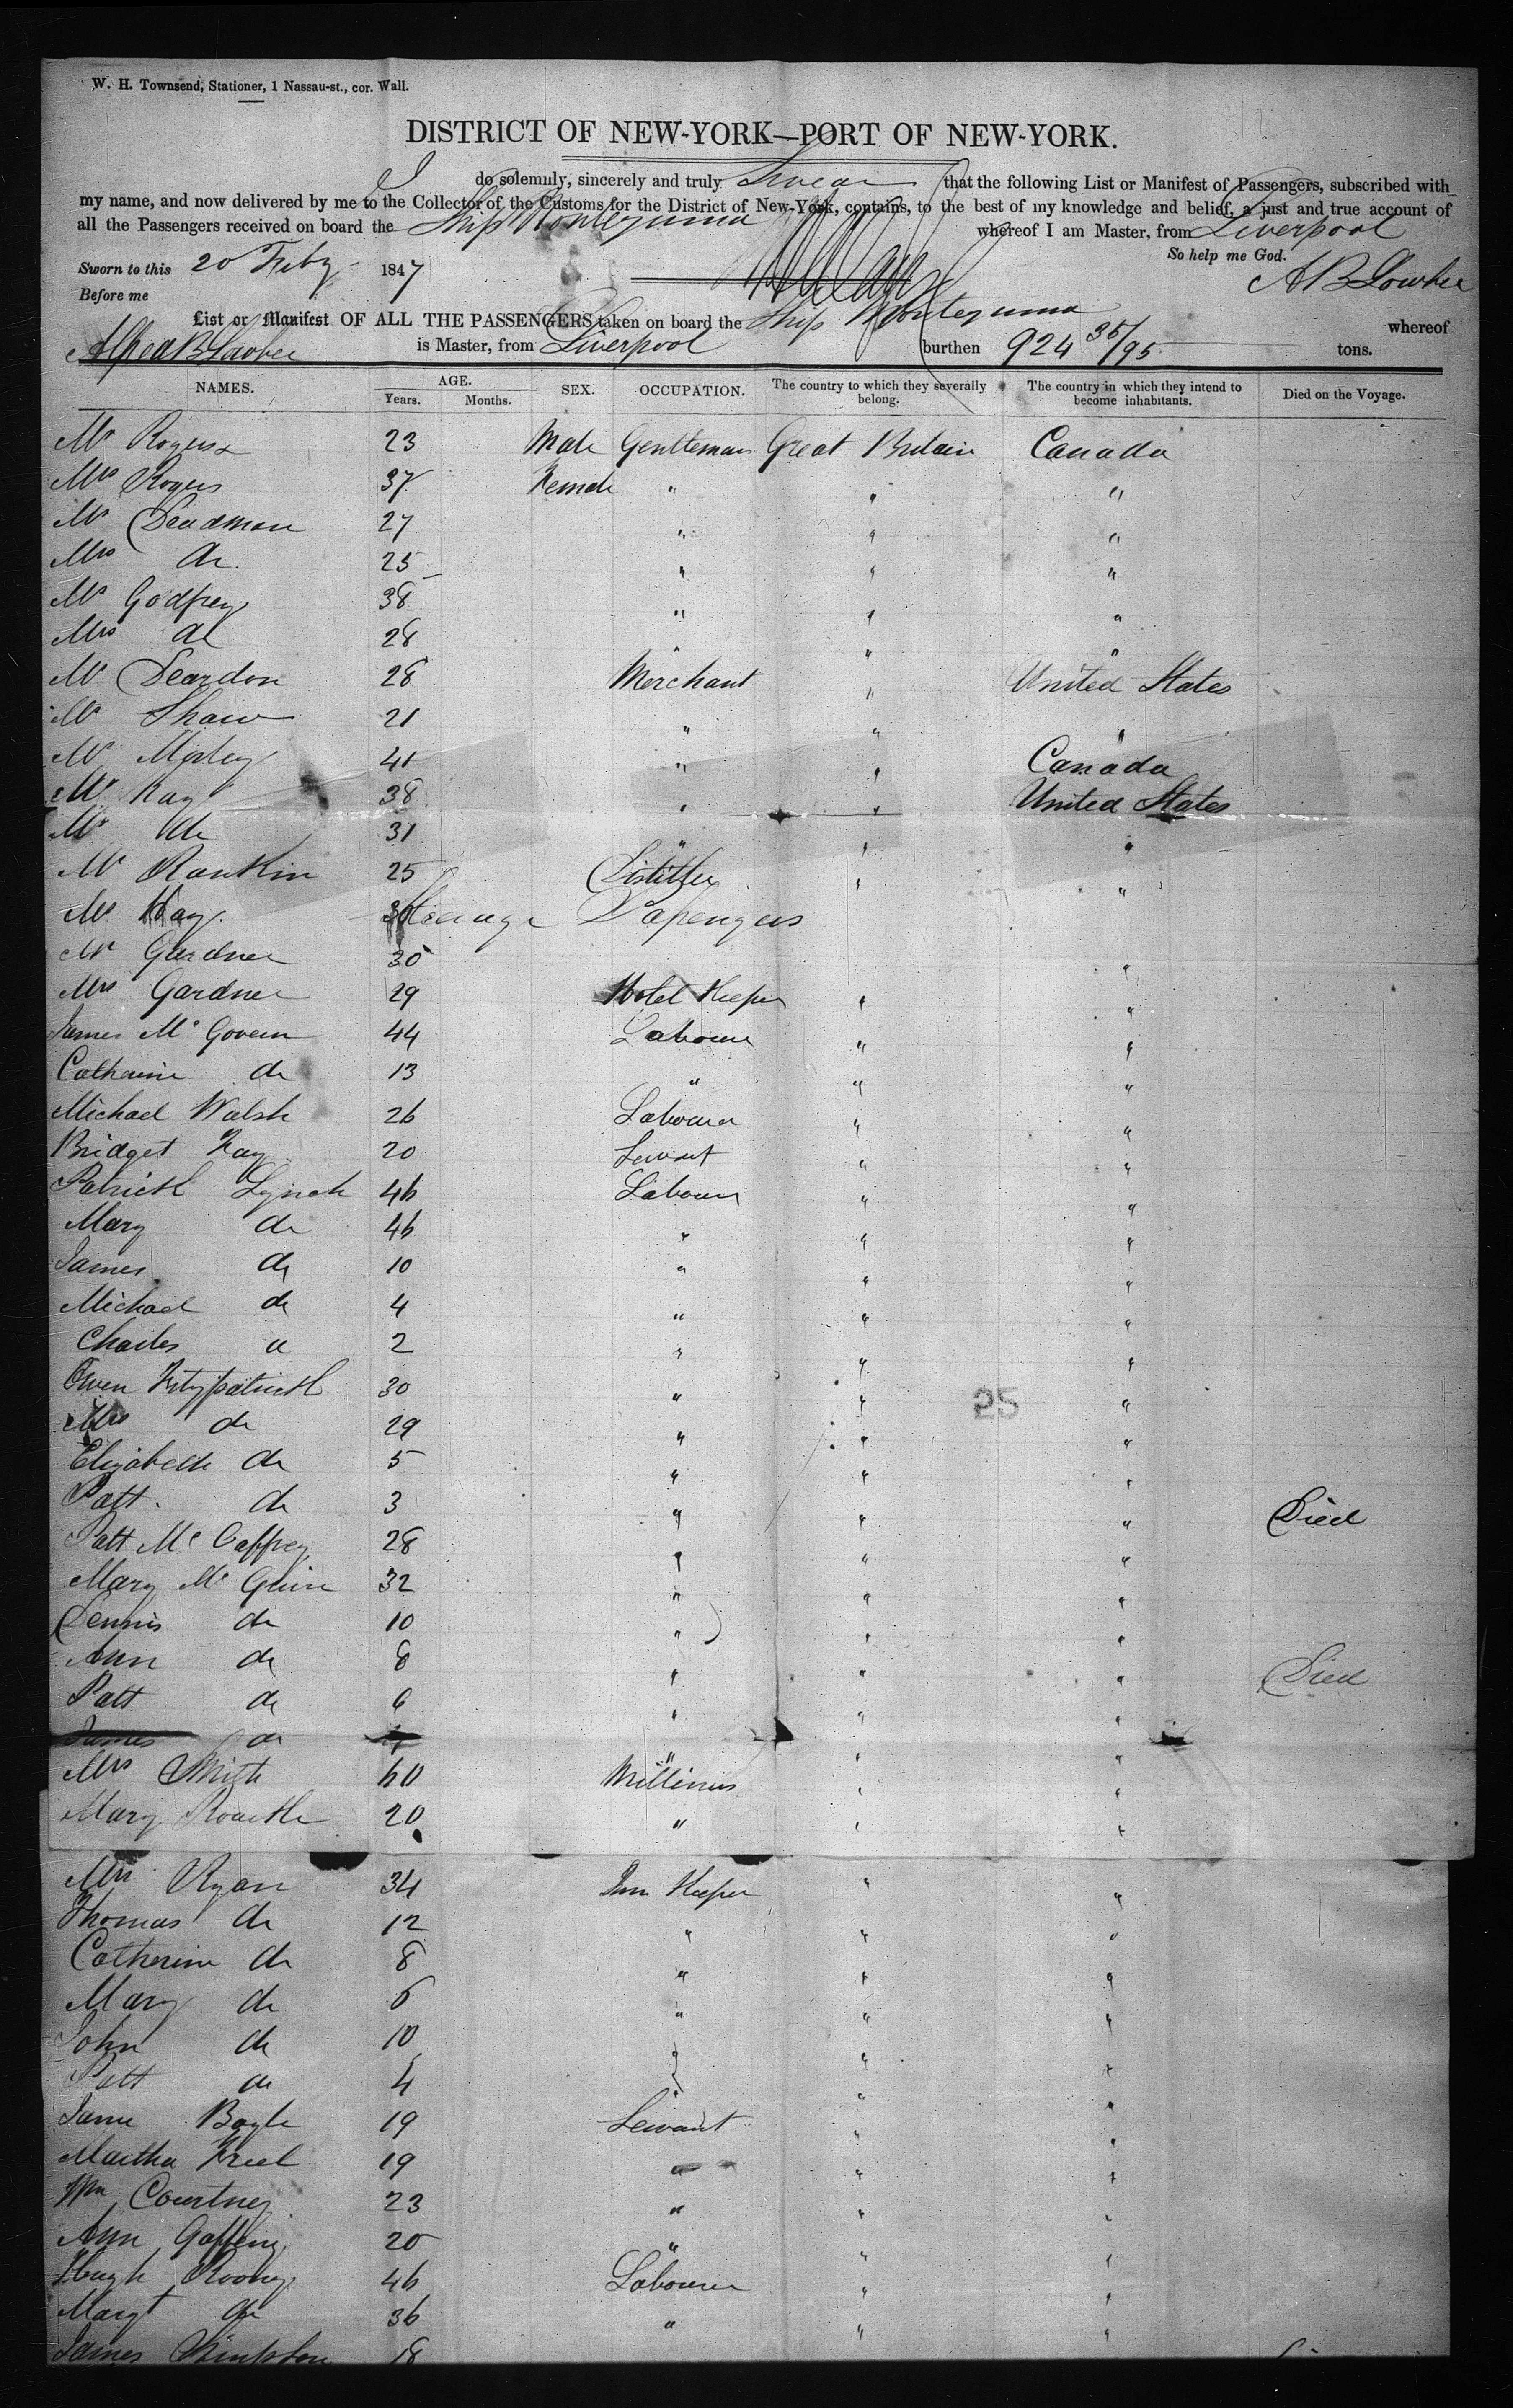 W. H. Townsend, Stationer, 1 Nassau-st., cor. Wall.
DISTRICT OF NEW-YORK—PORT OF NEW-YORK.
I do solemnly, sincerely and truly Swear that the following List or Manifest of Passengers, subscribed with
my name, and now delivered by me to the Collector of the Customs for the District of New-York, contains, to the best of my knowledge and belief, a just and true account of
all the Passengers received on board the Ship Montezuma whereof I am Master, from Liverpool
So help me God.
Sworn to this 20 Feby 1847 A B Lowber
Before me
List or Manifest OF ALL THE PASSENGERS taken on board the Ship Montezuma whereof
Alfred B Lowber is Master, from Liverpool burthen 924 35/95 tons.
NAMES. AGE. Years. Months. SEX. OCCUPATION. The country to which they severally belong. The country in which they intend to become inhabitants. Died on the Voyage.
Mr Rogers 23 Male Gentleman Great Britain Canada
Mrs Rogers 37 Female " " "
Mr Deadman 27 " " "
Mrs do 25 " " "
Mr Godfrey 38 " " "
Mrs do 28 " " "
Mr Deardon 28 Merchant " United States
Mr Shaw 21 " " "
Mr Morley 41 " " Canada
Mr Kay 38 " " United States
Mr do 31 " " "
Mr Rankin 25 Distiller " "
Mr Hay Steerage Passengers
Mr Gardner 30 "
Mrs Gardner 29 Hotel Keeper " "
James McGovern 44 Labourer " "
Catherine do 13 " " "
Michael Walsh 26 Labourer " "
Bridget Fay 20 Servant " "
Patrick Lynch 46 Labourer " "
Mary do 46 " " "
James do 10 " " "
Michael do 4 " " "
Charles do 2 " " "
Owen Fitzpatrick 30 " " "
25
Mrs do 29 " " "
Elizabeth do 5 " " "
Patt. do 3 " " " Died
Patt McCaffrey 28 " " "
Mary Mc Guire 32 " " "
Dennis do 10 " " "
Ann do 8 " " " Died
Patt do 6 " " "
James do " " "
Mrs Smith 60 Milliners " "
Mary 20 " " "
Mrs Ryan 34 Inn Keeper " "
Thomas do 12 " " "
Catherine do 8 " " "
Mary do 6 " " "
John do 10 " " "
Patt do 4 " " "
Jane Boyle 19 Servant " "
Martha Friel 19 " " "
Wm Courtney 23 " " "
Ann 20 " " "
Hugh Rooney 46 Labourer " "
Margt do 36 " " "
James Simpson 18